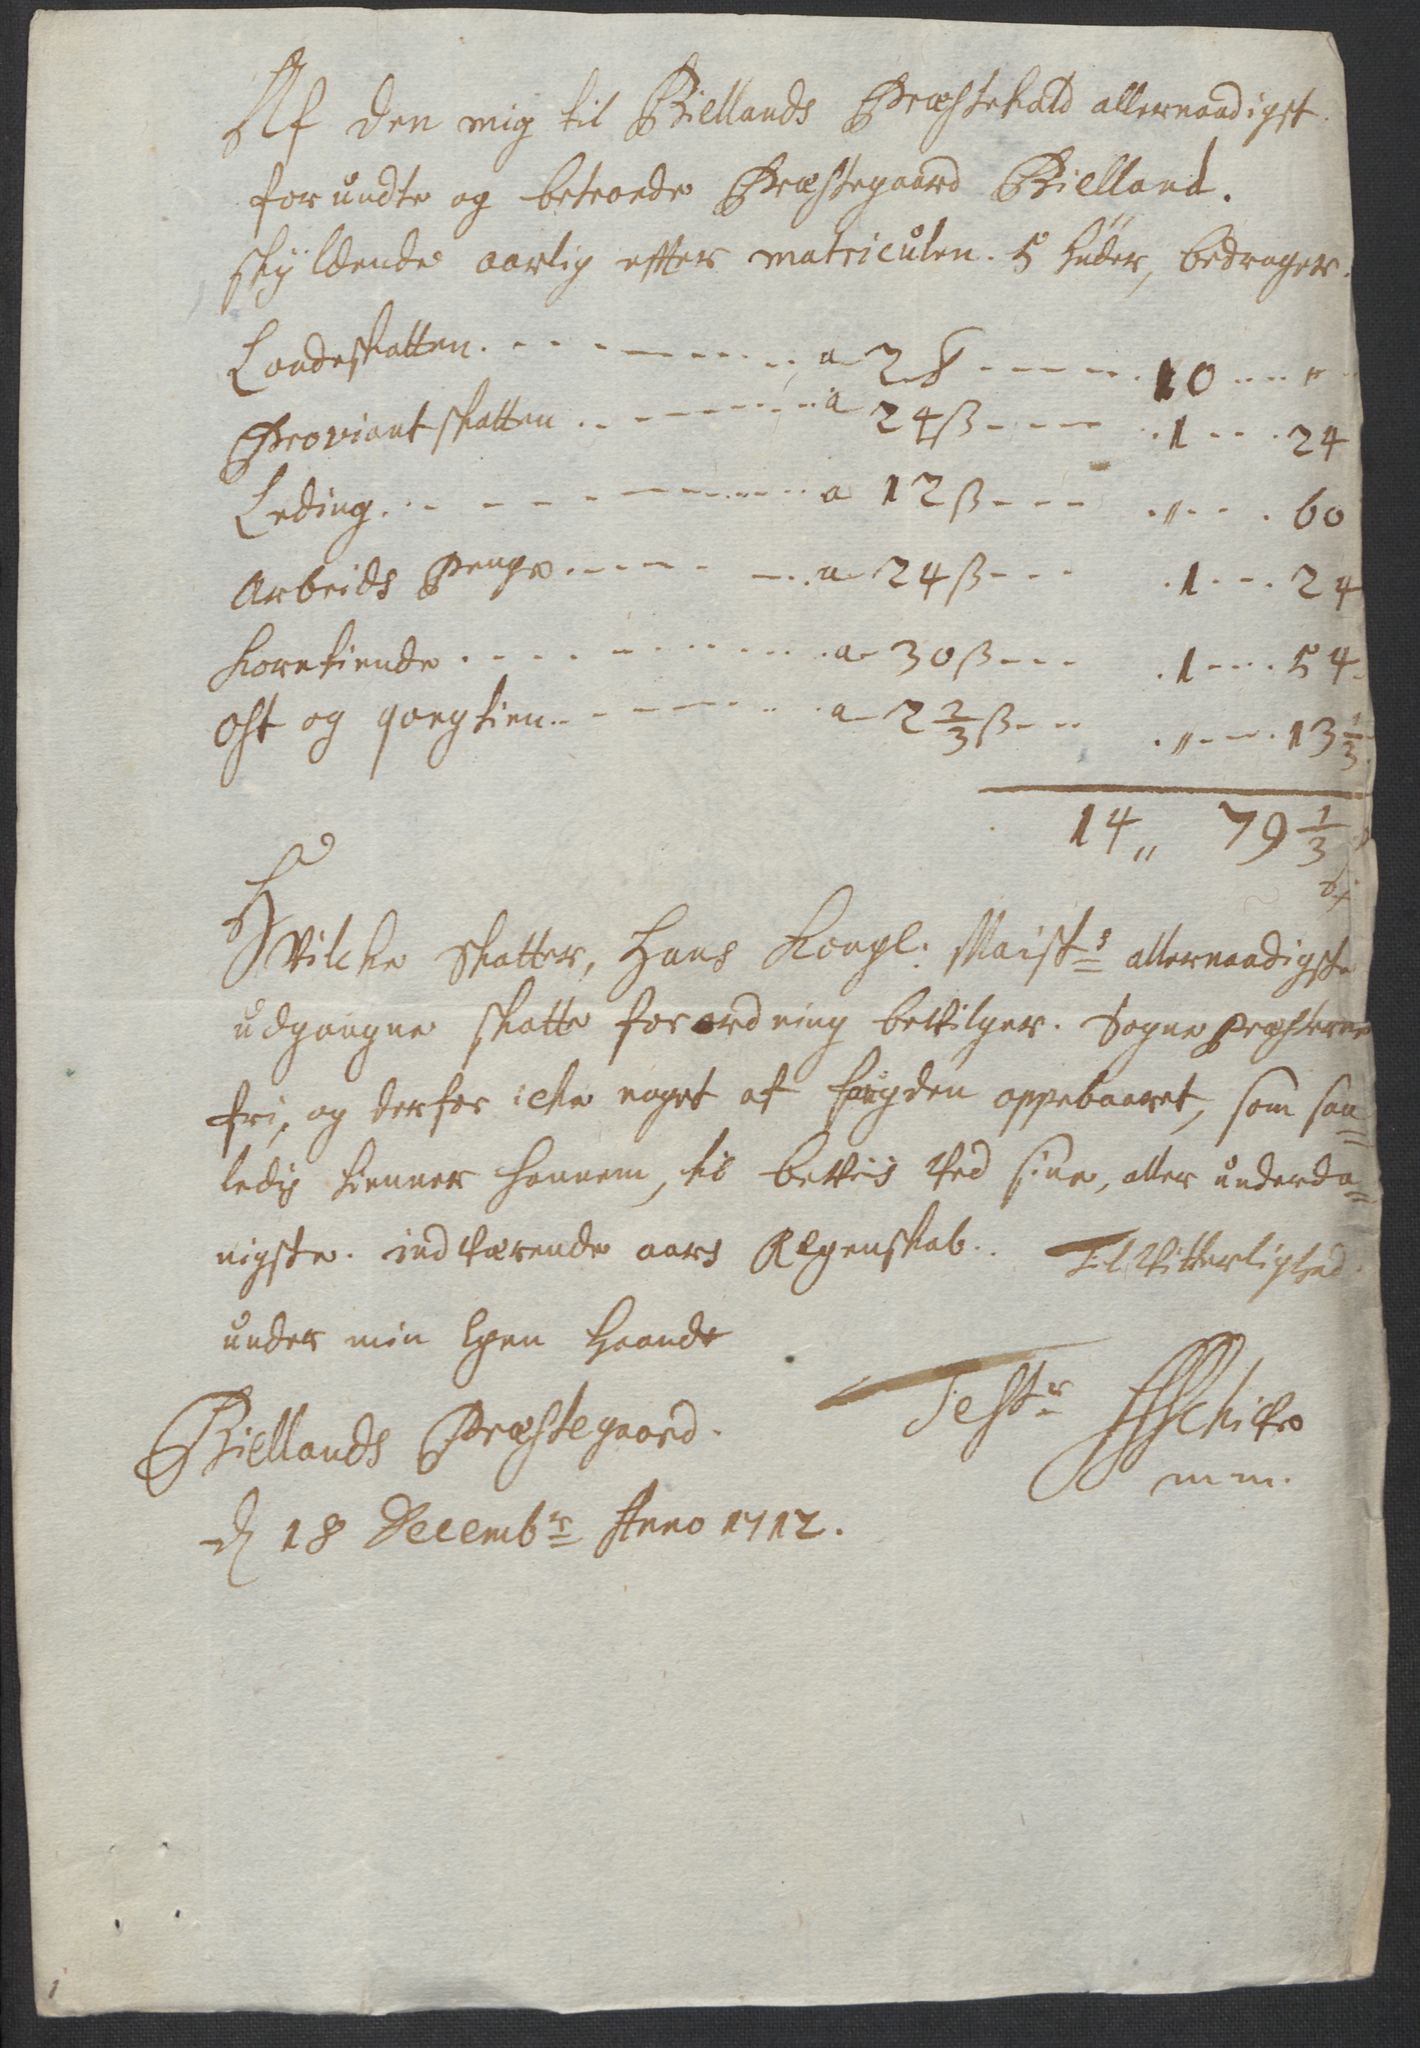 Af den mig til Biellands Præstekald allernaadigst
forundte og betroede Præstegaard Bielland.
skyldende aarlig effter matriculen. 5 huder, bedrager.
Landeskatten. a 2 10 "
Proviantskatten a 24 ß 1 24
Leding. a 12 ß " 60
Arbeids Penge a 24 ß 1 24
Korntiende a 30 ß 1 54
Ost og qvegtien a 2 2/3 ß " 13 1/3
14 " 79 1/3
Hvilcke Skatter, Hans Kongl. Maists allernaadigste
udgangne skatte forordning bevilger. Sogne Præsterne
fri, og derfor icke noget af fougden oppebaaret, som saa=
ledis tienner hannem, til beviis ved sine, aller underda=
nigste. indværende aars Regenskab. Til Vitterlighed.
under min Egen Haand
Biellands Præstegaard. Testr
mm.
d 18 Decembr Anno 1712.